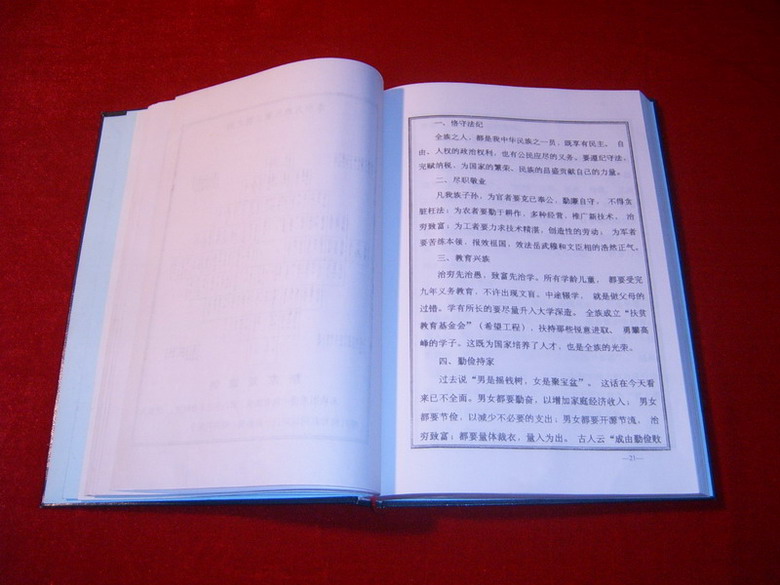 一、恪守法纪
全族之人，都是我中华民族之一员，既享有民主、自
由、人权的政治权利，也有公民应尽的义务。要遵纪守法，
完赋纳税，为国家的繁荣、民族的昌盛贡献自己的力量。
二、尽职敬业
凡我族子孙，为官者要克己奉公，勤廉自守，不得贪
赃枉法；为农者要勤于耕作，多种经营，推广新技术，治
穷致富；为工者要力求技术精湛，创造性的劳动；为军者
要苦练本领，报效祖国，效法岳武穆和文臣相的浩然正气。
三、教育兴族
治穷先治愚，致富先治学。所有学龄儿童，都要受完
九年义务教育，不许出现文盲。中途辍学，就是做父母的
过错。学有所长的要尽量升入大学深造。全族成立“扶贫
教育基金会”（希望工程），扶持那些锐意进取、勇攀高
峰的学子。这既为国家培养了人才，也是全族的光荣。
四、勤俭持家
过去说“男是摇钱树，女是聚宝盆”。这话在今天看
来已不全面。男女都要勤奋，以增加家庭经济收入；男女
都要节俭，以减少不必要的支出；男女都要开源节流，治
穷致富；都要量体裁衣，量入为出。古人云“成由勤俭败
—21—